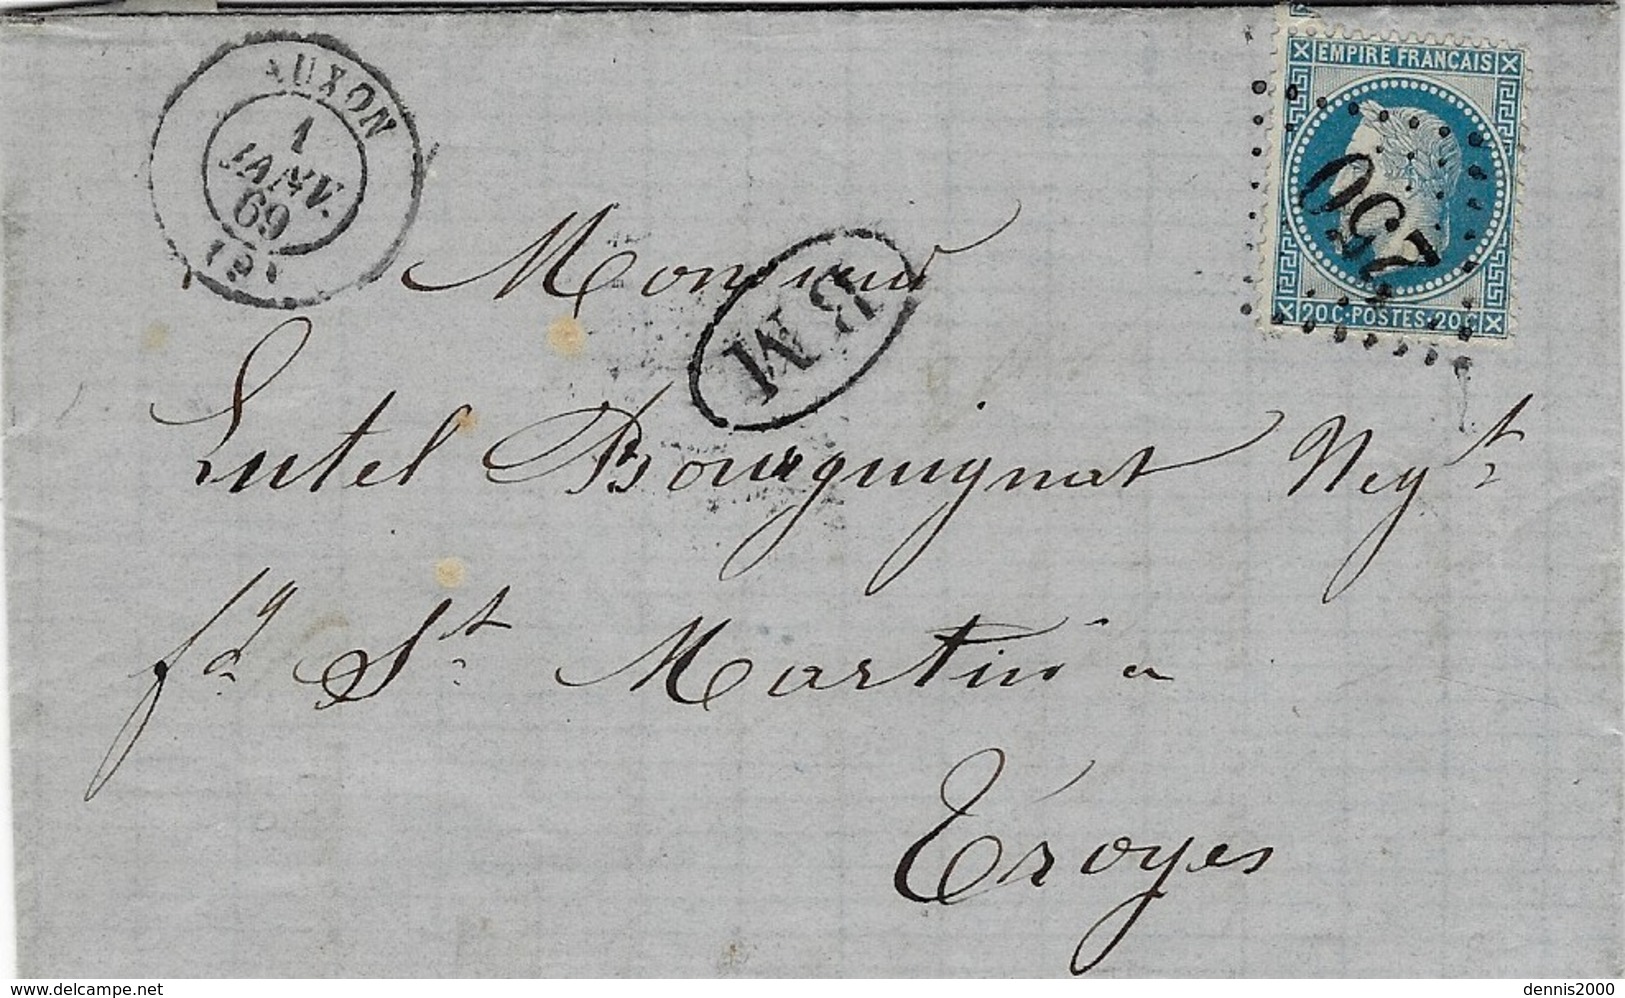 AUXON
1
JANV.
69
(9)
EMPIRE FRANÇAIS
250
20 C·POSTES·20 C
BM
Monsieur
Lutel Bourguignat Neg.t
f.g d. S.t Martin a
Troyes
www.delcampe.net
dennis2000